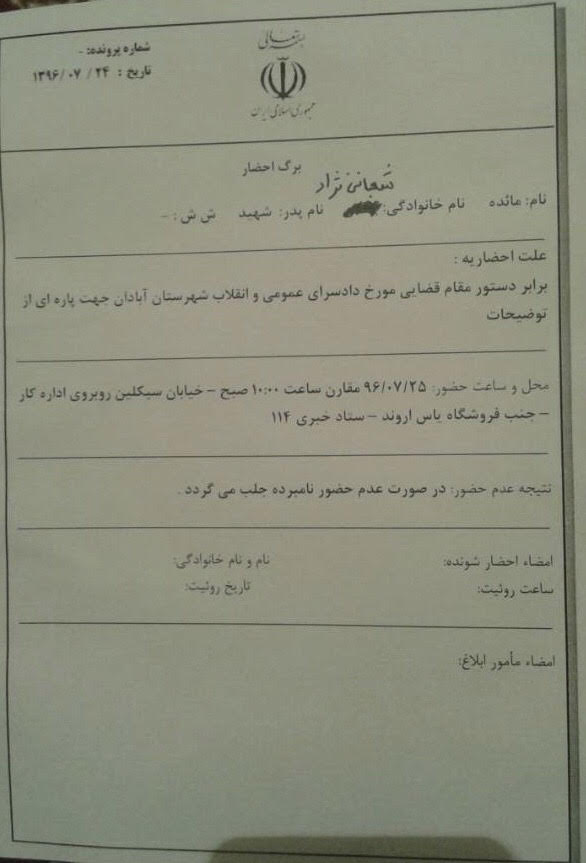 بسمه تعالی
جمهوری اسلامی ایران
شماره پرونده: -
تاریخ : ۱۳۹۶/۰۷/۲۴
برگ احضار
نام: مائده نام خانوادگی: شعبانی نژاد نام پدر: شهید ش ش : -
علت احضاریه :
برابر دستور مقام قضایی مورخ دادسرای عمومی و انقلاب شهرستان آبادان جهت پاره ای از
توضیحات
محل و ساعت حضور: ۹۶/۰۷/۲۵ مقارن ساعت ۱۰:۰۰ صبح – خیابان سیکلین روبروی اداره کار
– جنب فروشگاه یاس اروند – ستاد خبری ۱۱۴
نتیجه عدم حضور: در صورت عدم حضور نامبرده جلب می گردد .
امضاء احضار شونده: نام و نام خانوادگی:
ساعت روئیت: تاریخ روئیت:
امضاء مأمور ابلاغ: